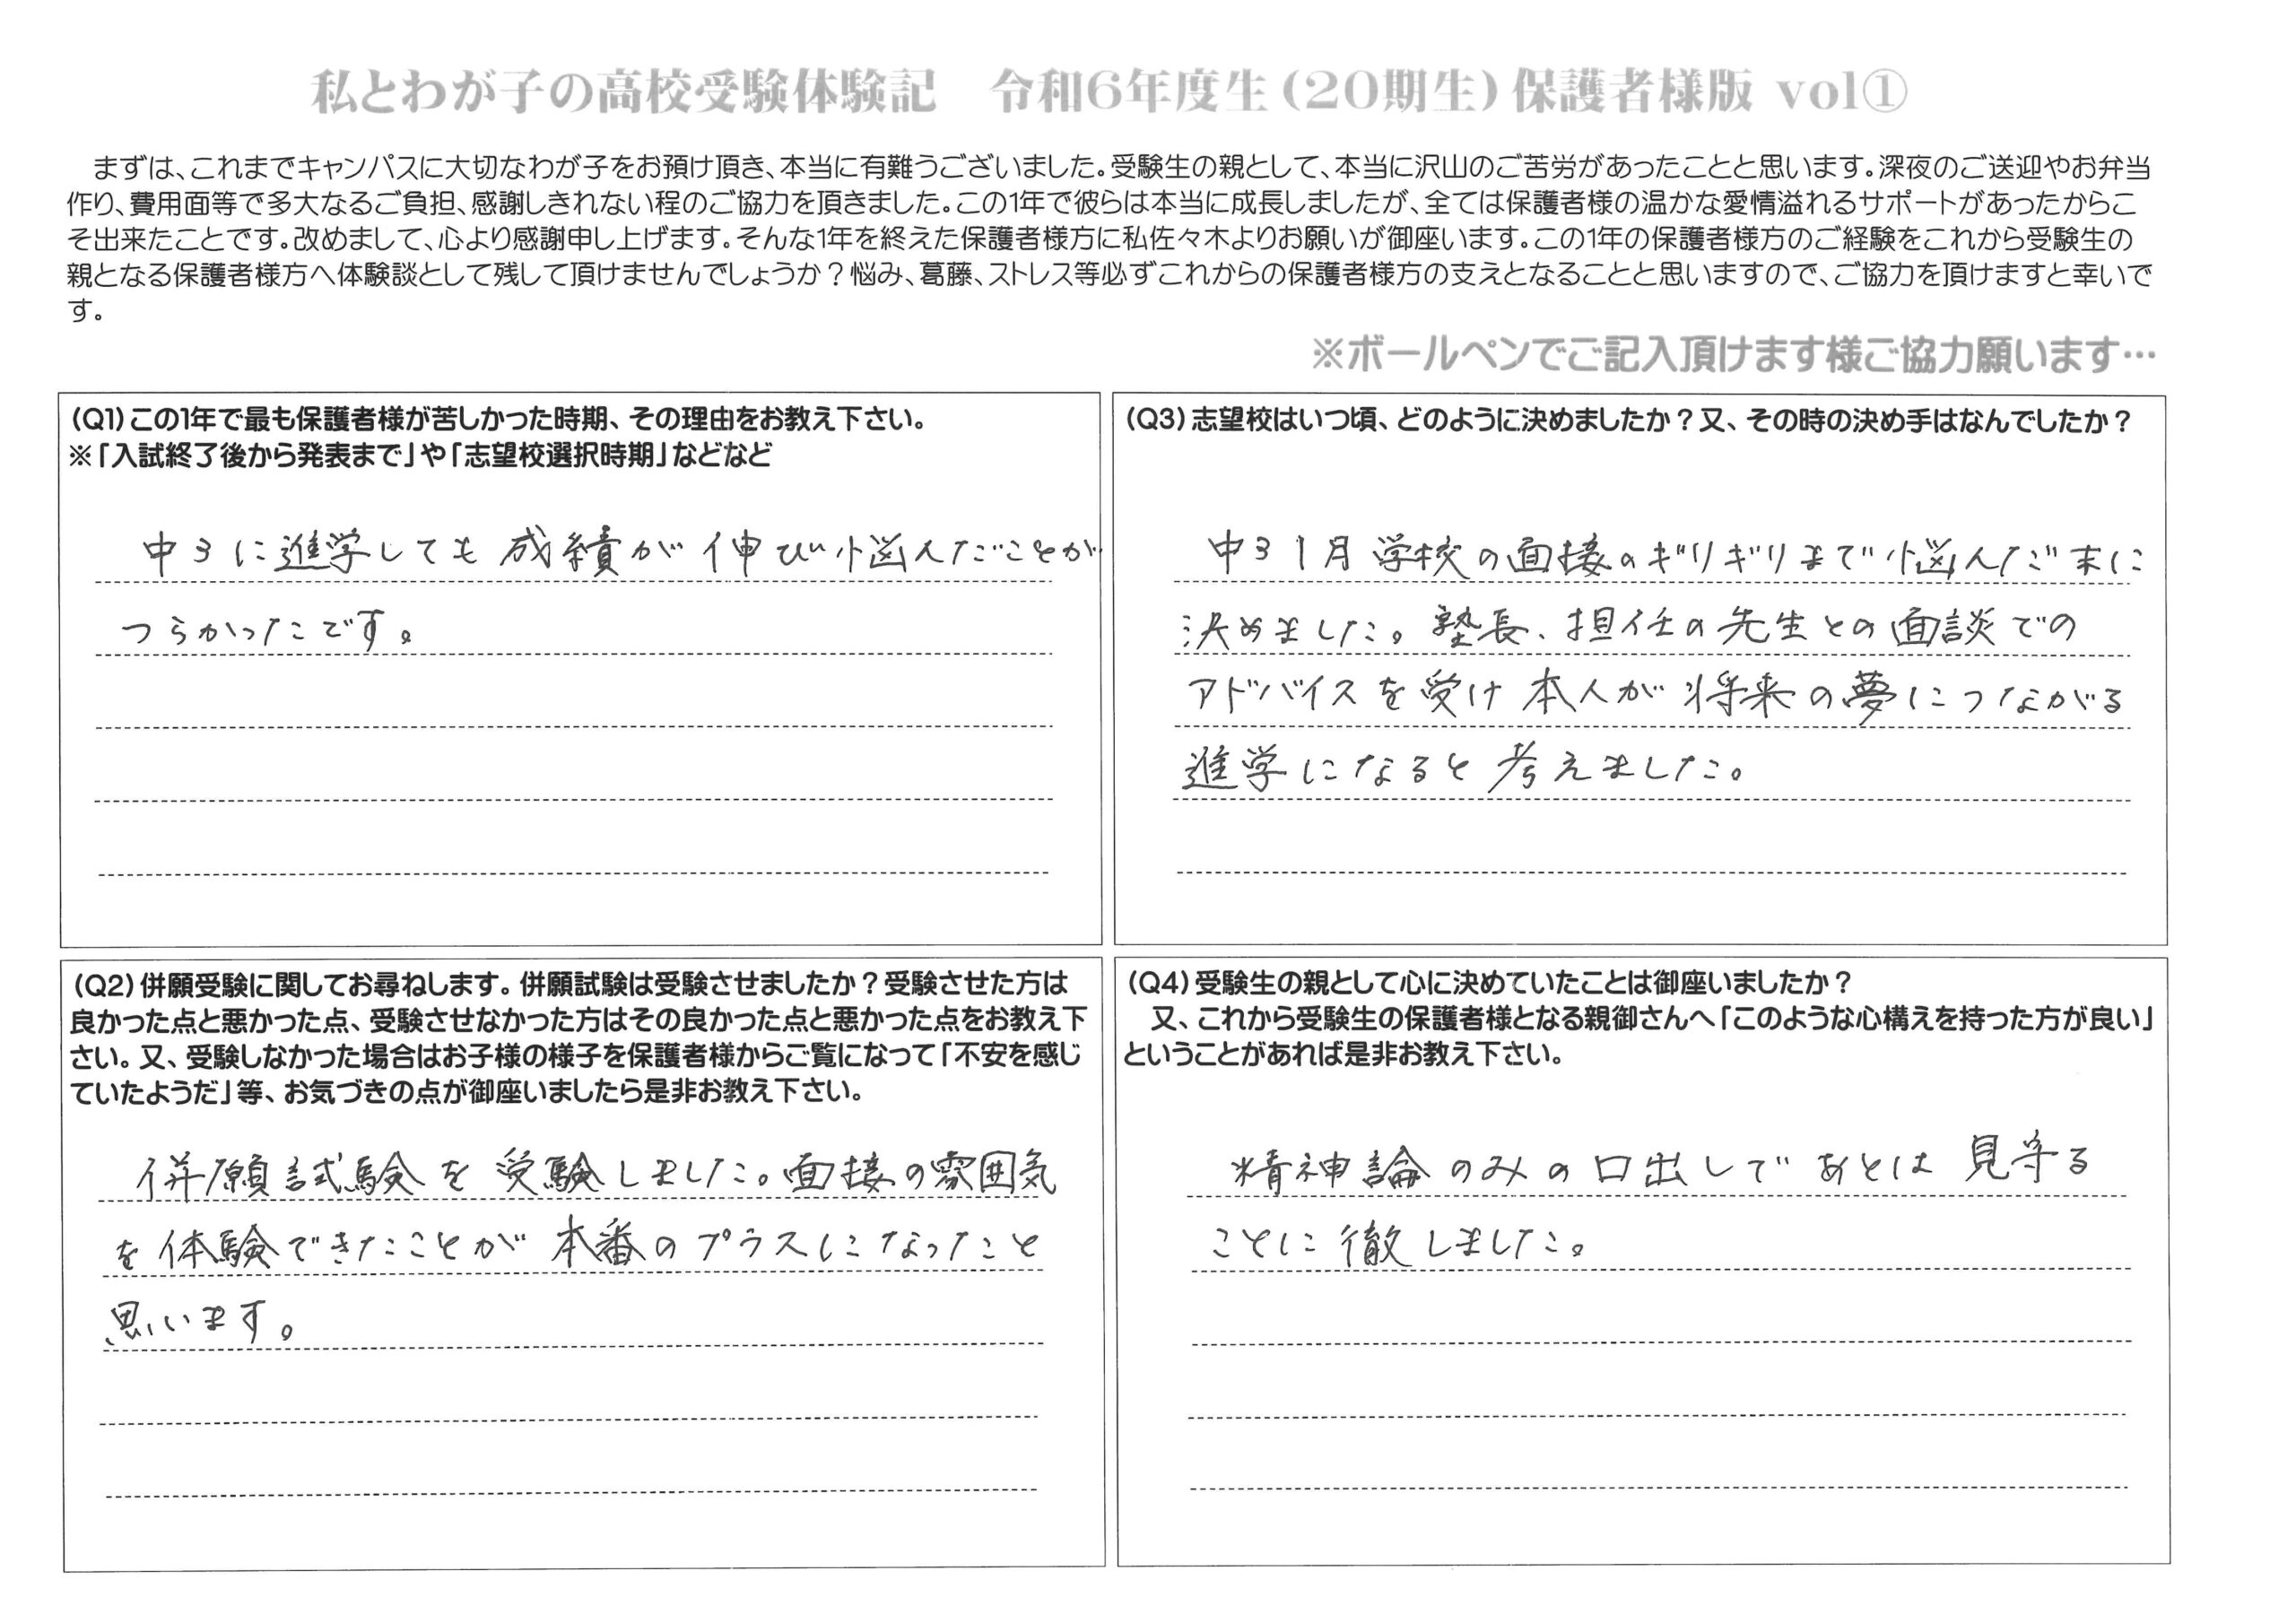 私とわが子の高校受験体験記　令和6年度生(20期生)保護者様版 vol①
まずは、これまでキャンパスに大切なわが子をお預け頂き、本当に有難うございました。受験生の親として、本当に沢山のご苦労があったことと思います。深夜のご送迎やお弁当
作り、費用面等で多大なるご負担、感謝しきれない程のご協力を頂きました。この1年で彼らは本当に成長しましたが、全ては保護者様の温かな愛情溢れるサポートがあったからこ
そ出来たことです。改めまして、心より感謝申し上げます。そんな1年を終えた保護者様方に私佐々木よりお願いが御座います。この1年の保護者様方のご経験をこれから受験生の
親となる保護者様方へ体験談として残して頂けませんでしょうか？悩み、葛藤、ストレス等必ずこれからの保護者様方の支えとなることと思いますので、ご協力を頂けますと幸いで
す。
※ボールペンでご記入頂けます様ご協力願います…
(Q1)この1年で最も保護者様が苦しかった時期、その理由をお教え下さい。
※「入試終了後から発表まで」や「志望校選択時期」などなど
中3に進学しても成績が伸び悩んだことが
つらかったです。
(Q2)併願受験に関してお尋ねします。併願試験は受験させましたか？受験させた方は
良かった点と悪かった点、受験させなかった方はその良かった点と悪かった点をお教え下
さい。又、受験しなかった場合はお子様の様子を保護者様からご覧になって「不安を感じ
ていたようだ」等、お気づきの点が御座いましたら是非お教え下さい。
併願試験を受験しました。面接の雰囲気
を体験できたことが本番のプラスになったこと
思います。
(Q3)志望校はいつ頃、どのように決めましたか？又、その時の決め手はなんでしたか？
中3 1月学校の面接のギリギリまで悩んだ末に
決めました。塾長、担任の先生との面談での
アドバイスを受け本人が将来の夢につながる
進学になると考えました。
(Q4)受験生の親として心に決めていたことは御座いましたか？
又、これから受験生の保護者様となる親御さんへ「このような心構えを持った方が良い」
ということがあれば是非お教え下さい。
精神論のみの口出しであとは見守る
ことに徹しました。